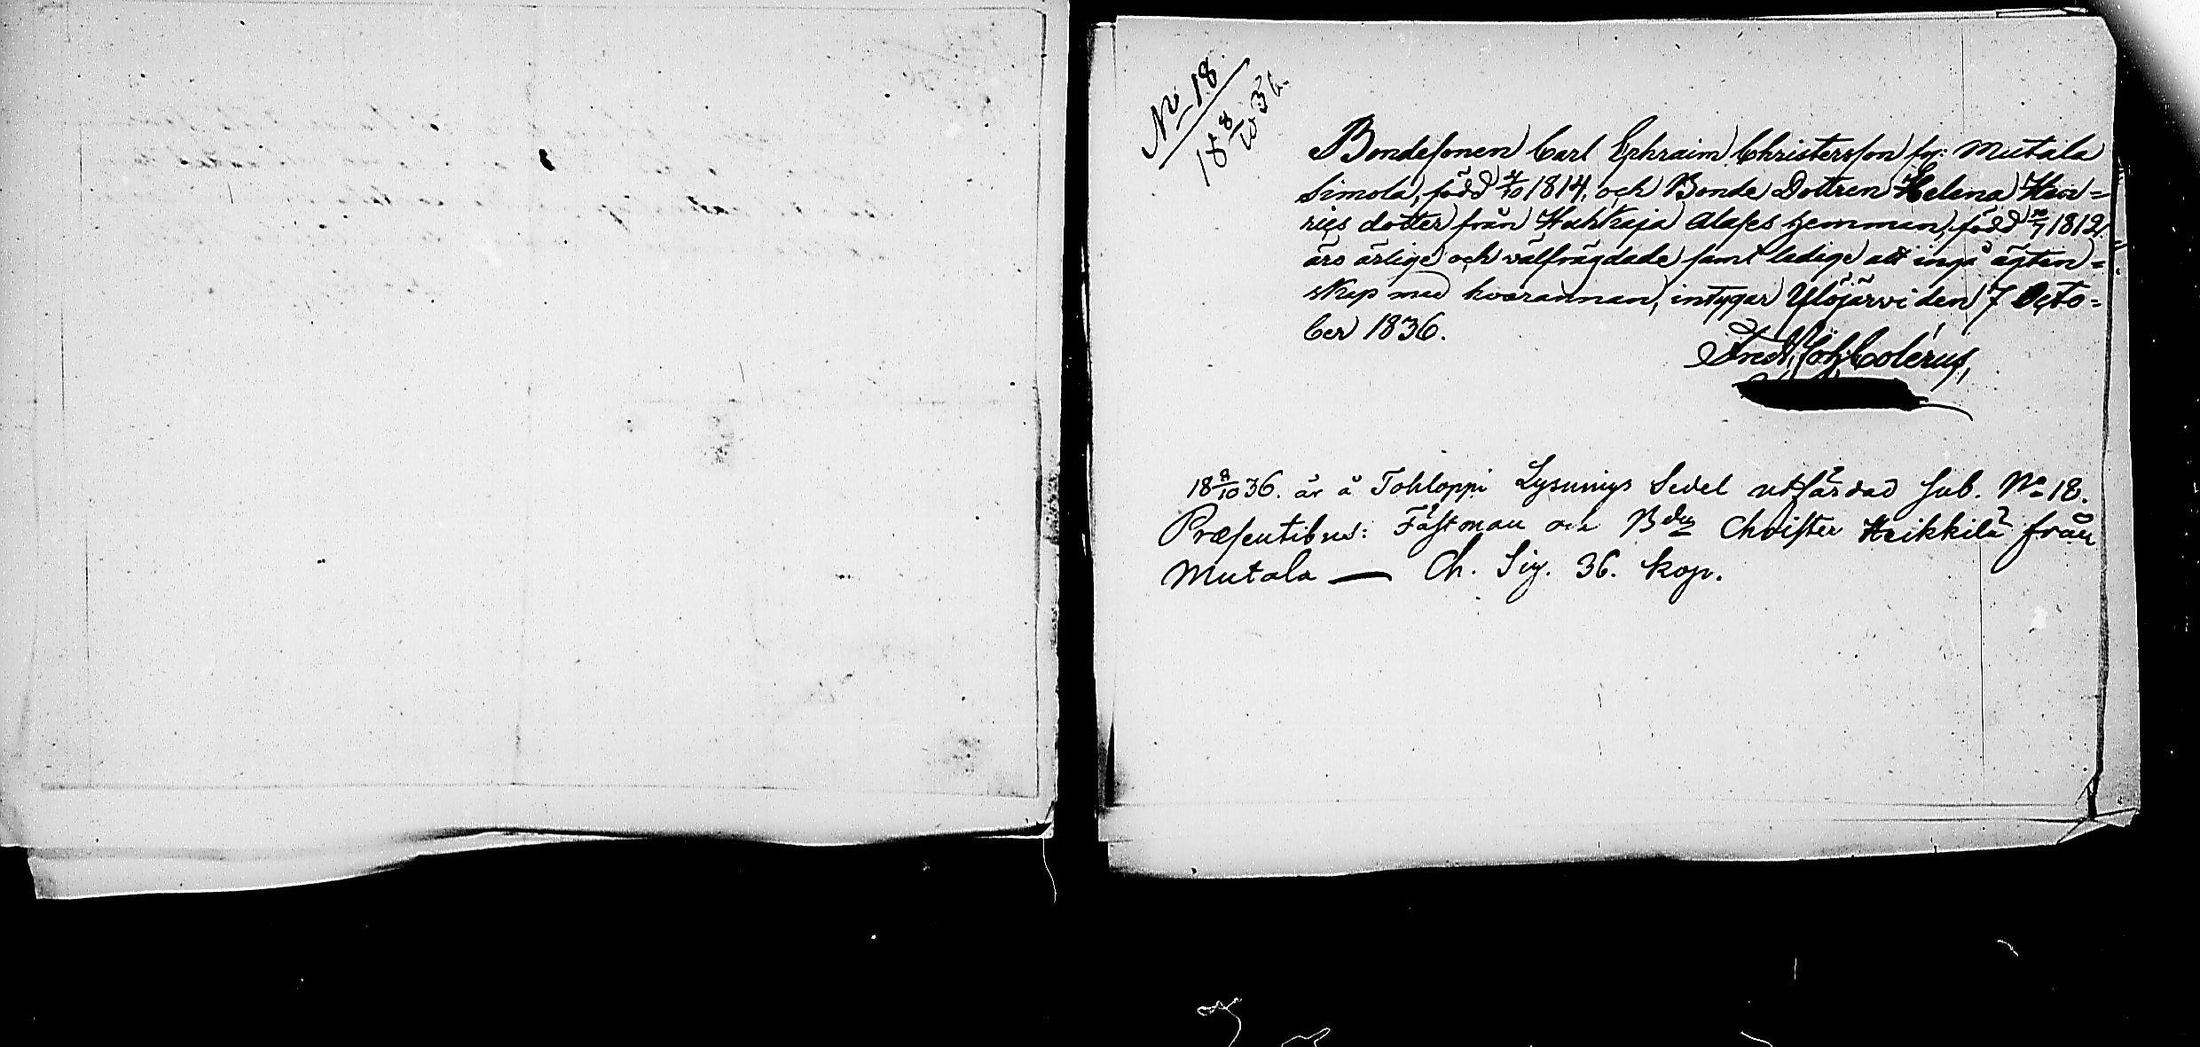 No 18.
18 8/10 36.
Bondesonen Carl Ephraim Christersson fr: Mutala
Simola, född 4/10 1814, och Bonde Dottren Helena Hen=
rics dotter från Hahkaja Alases hemman, född 1812,
äro ärlige och välfrägdade samt ledige att ingå ägten=
skap med hvarannan, intygar Ylöjärvi den 7 Octo=
ber 1836.
Fredr. Joh. Colerus,
18 8/10 36. är å Tohloppi Lysnings Sedel utfärdad sub. No 18.
Præsentibus: Fästman och Bdn Christer Heikkilä från
Mutala — Ch. Sig. 36. kop.